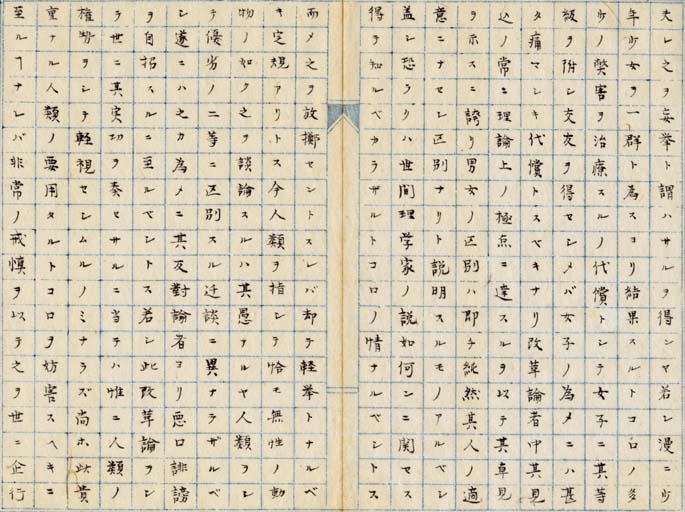 夫レ之ヲ妄挙ト謂ハサルヲ得ンヤ若シ漫ニ少
年少女ヲ一群ト為スヨリ結果スルトコロノ多
少ノ弊害ヲ治療スルノ代償トシテ女子ニ其等
級ヲ附シ交友ヲ得セシメバ女子ノ為メニハ甚
タ痛マシキ代償トスベキナリ改革論者中其見
込ノ常ニ理論上ノ極点ニ達スルヲ以テ其卓見
ヲ示スニ誇リ男女ノ区別ハ即チ純然其人ノ適
意ニナセシ区別ナリト説明スルモノアルベシ
盖シ恐ラクハ世間理学家ノ説如何ンニ関セス
得テ知ルベカラザルトコロノ情ナルベシトス
而メ之ヲ放擲セントスレバ却テ軽挙トナルベ
キ定規アリトス今人類ヲ指シテ恰モ無性ノ動
物ノ如ク之ヲ談論スルハ其愚アルヤ人類ヲシ
テ優劣ノ二等ニ区別スル迂談ニ異ナラザルベ
シ遂ニハ之カ為メニ其反對論者ヨリ悪口誹謗
ヲ自招スルニ至ルベシトス若シ此改革論ヲシ
テ世ニ其実功ヲ奏セサルニ当テハ惟ニ人類ノ
権勢ヲシテ軽視セシムルノミナラズ尚ホ此貴
重ナル人類ノ要用タルトコロヲ妨害スヘキニ
至ルヿナレバ非常ノ戒慎ヲ以テ之ヲ世ニ企行